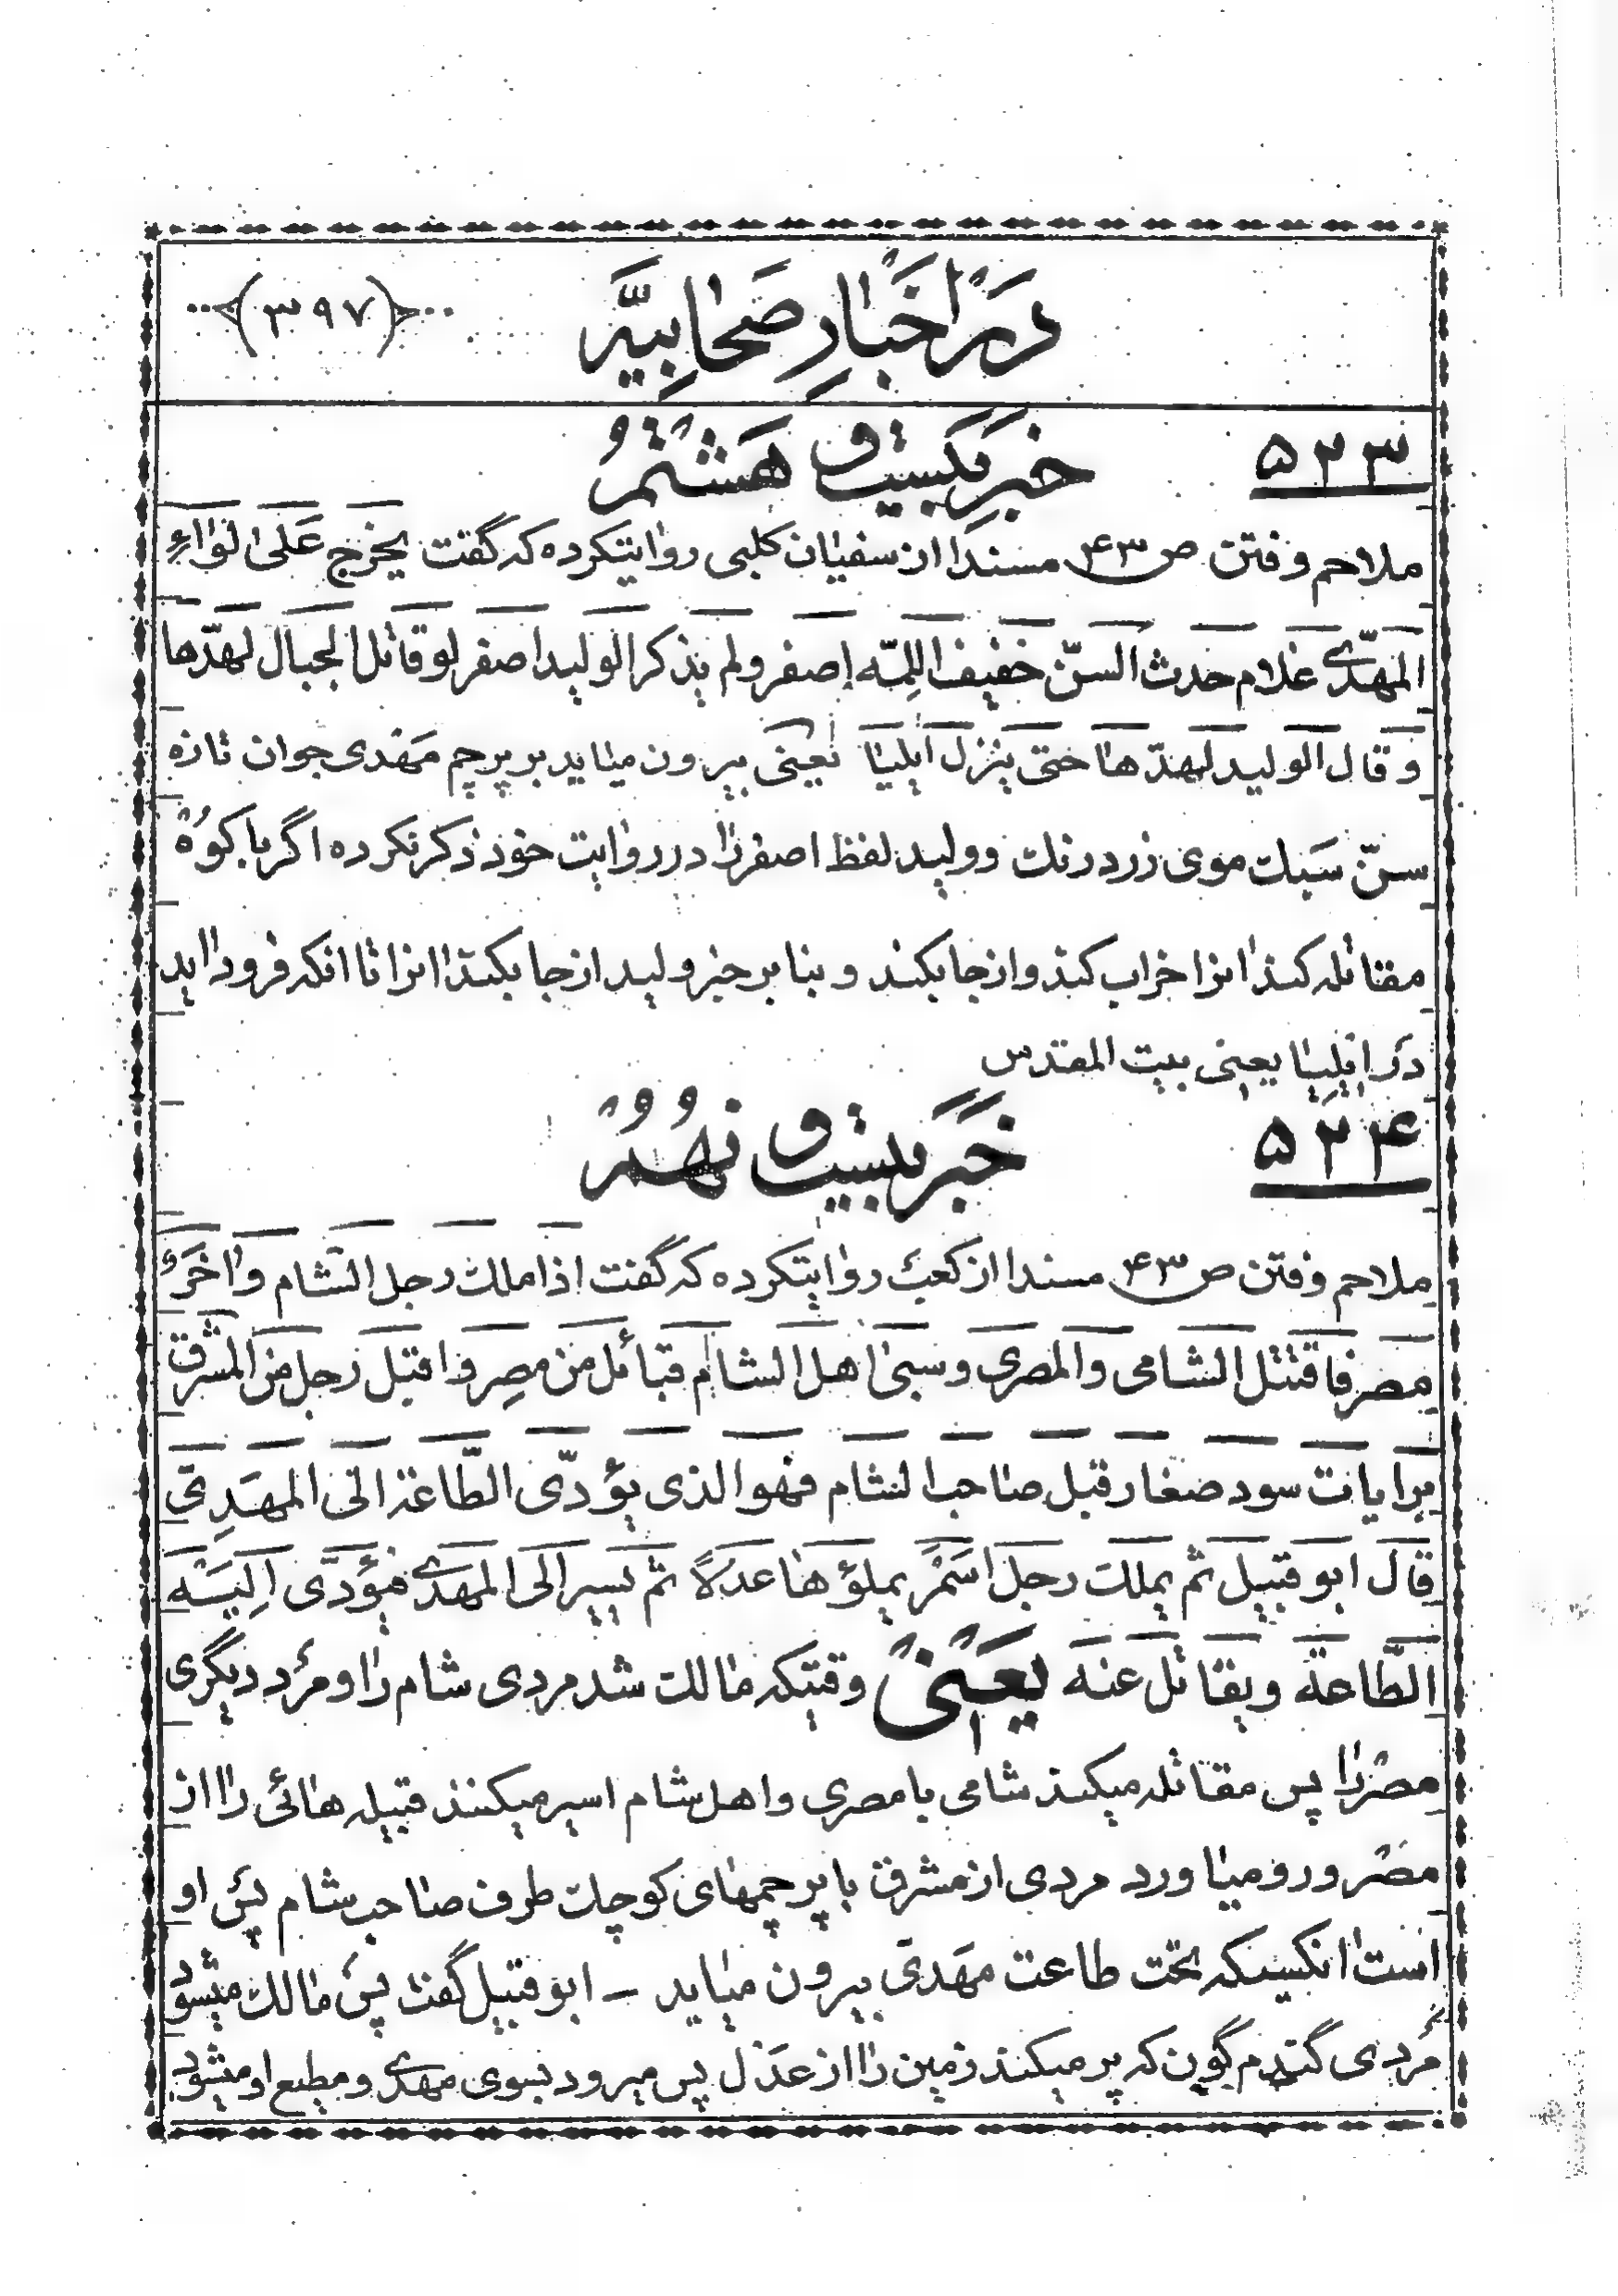 در اخبار صحابیّه
(۳۹۷)
۵۲۳
خبر بیست و هشتم
ملاحم و فتن ص ۴۳ مسندا از سفیان کلبی روایتکرده که گفت یخرج علی لواء
المهدّی غلام حدث السنّ خفیف اللمّه اصفر و لم یذکر الولید اصفر لو قاتل الجبال لهدّها
و قال الولید لهدّها حتی ینزل ایلیا یعنی بیرون میاید بر پرچم مهدی جوان تازه
سنّ سبک موی زرد رنک و ولید لفظ اصفر را در روایت خود ذکر نکرده اگر با کوه
مقاتله کند انرا خراب کند و از جا بکند و بنا بر خبر ولید از جا بکند انرا تا انکه فرود اید
در ایلیا یعنی بیت المقدس
۵۲۴
خبر بیست و نهم
ملاحم و فتن ص ۴۳ مسندا از کعب روایتکرده که گفت اذا ملک رجل الشام و اخر
مصر فاقتتل الشامی و المصری و سبی اهل الشام قبائل من مصر و اقبل رجل من المشرق
برایات سود صغار قبل صاحب الشام فهو الذی یؤدّی الطّاعة الی المهدی
قال ابو قبیل ثم یملک رجل اسمر یملؤها عدلا ثم یسیر الی المهدی فیؤدّی الیه
الطّاعة و یقاتل عنه یعنی وقتیکه مالک شد مردی شام را و مرد دیگری
مصر را پس مقاتله میکند شامی با مصری و اهل شام اسیر میکنند قبیله هائی را از
مصر و رو میاورد مردی از مشرق با پرچمهای کوچک طرف صاحب شام پس او
است انکسیکه تحت طاعت مهدی بیرون میاید – ابو قبیل گفت پس مالک میشود
مردی گندم گون که پر میکند زمین را از عدل پس میرود بسوی مهدی و مطیع او میشود